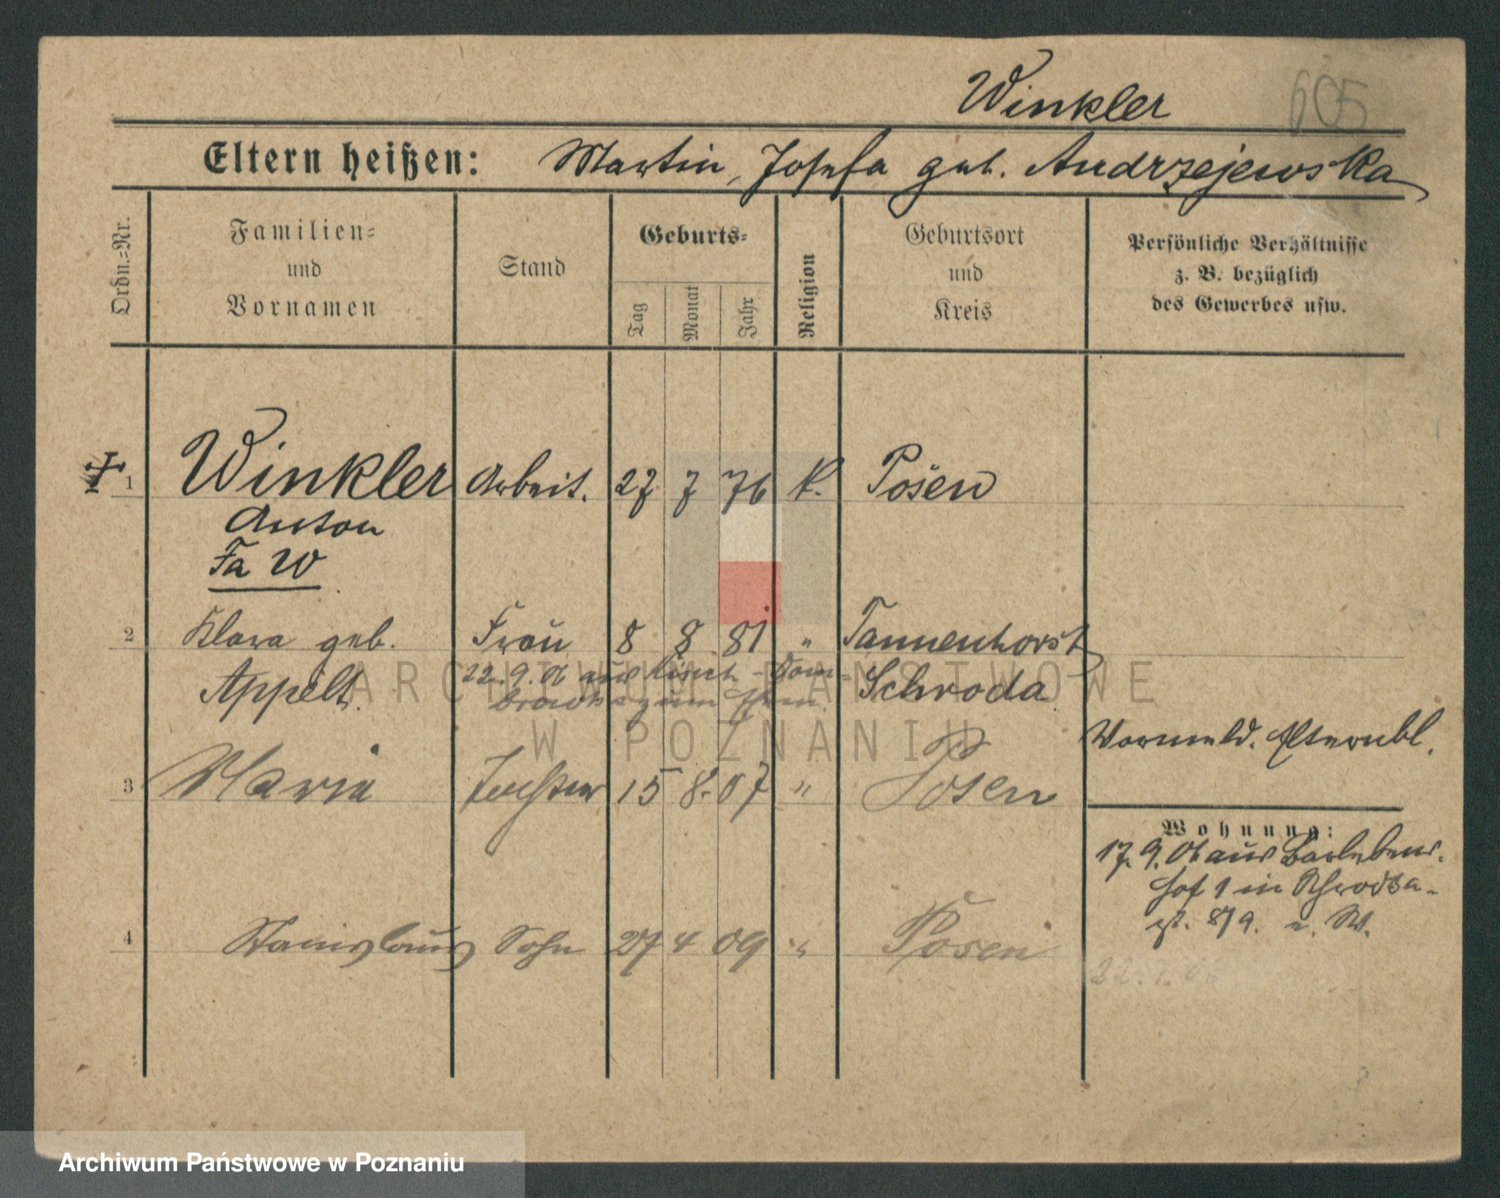 Winkler 605
Eltern heißen: Martin, Josefa geb. Andrzejewska
Ordn.=Nr.
Familien=
und
Vornamen
Stand
Geburts=
Tag
Monat
Jahr
Religion
Geburtsort
und
Kreis
Persönliche Verhältnisse
z. B. bezüglich
des Gewerbes usw.
1 Winkler Arbeit. 27 7 76 K. Posen
Anton
Fa W
2 Klara geb. Frau 8 8 81 " Tannenhorst
Appelt. Schroda
22.9.06 aus
zum
Vormeld. Elternbl.
3 Marie Tochter 15 8. 07 " Posen
Wohnung:
17.9.06 aus Barlebens.
hof 1 in
4 Stanislaus Sohn 27 4 09 " Posen
ARCHIWUM PAŃSTWOWE
W POZNANIU
Archiwum Państwowe w Poznaniu